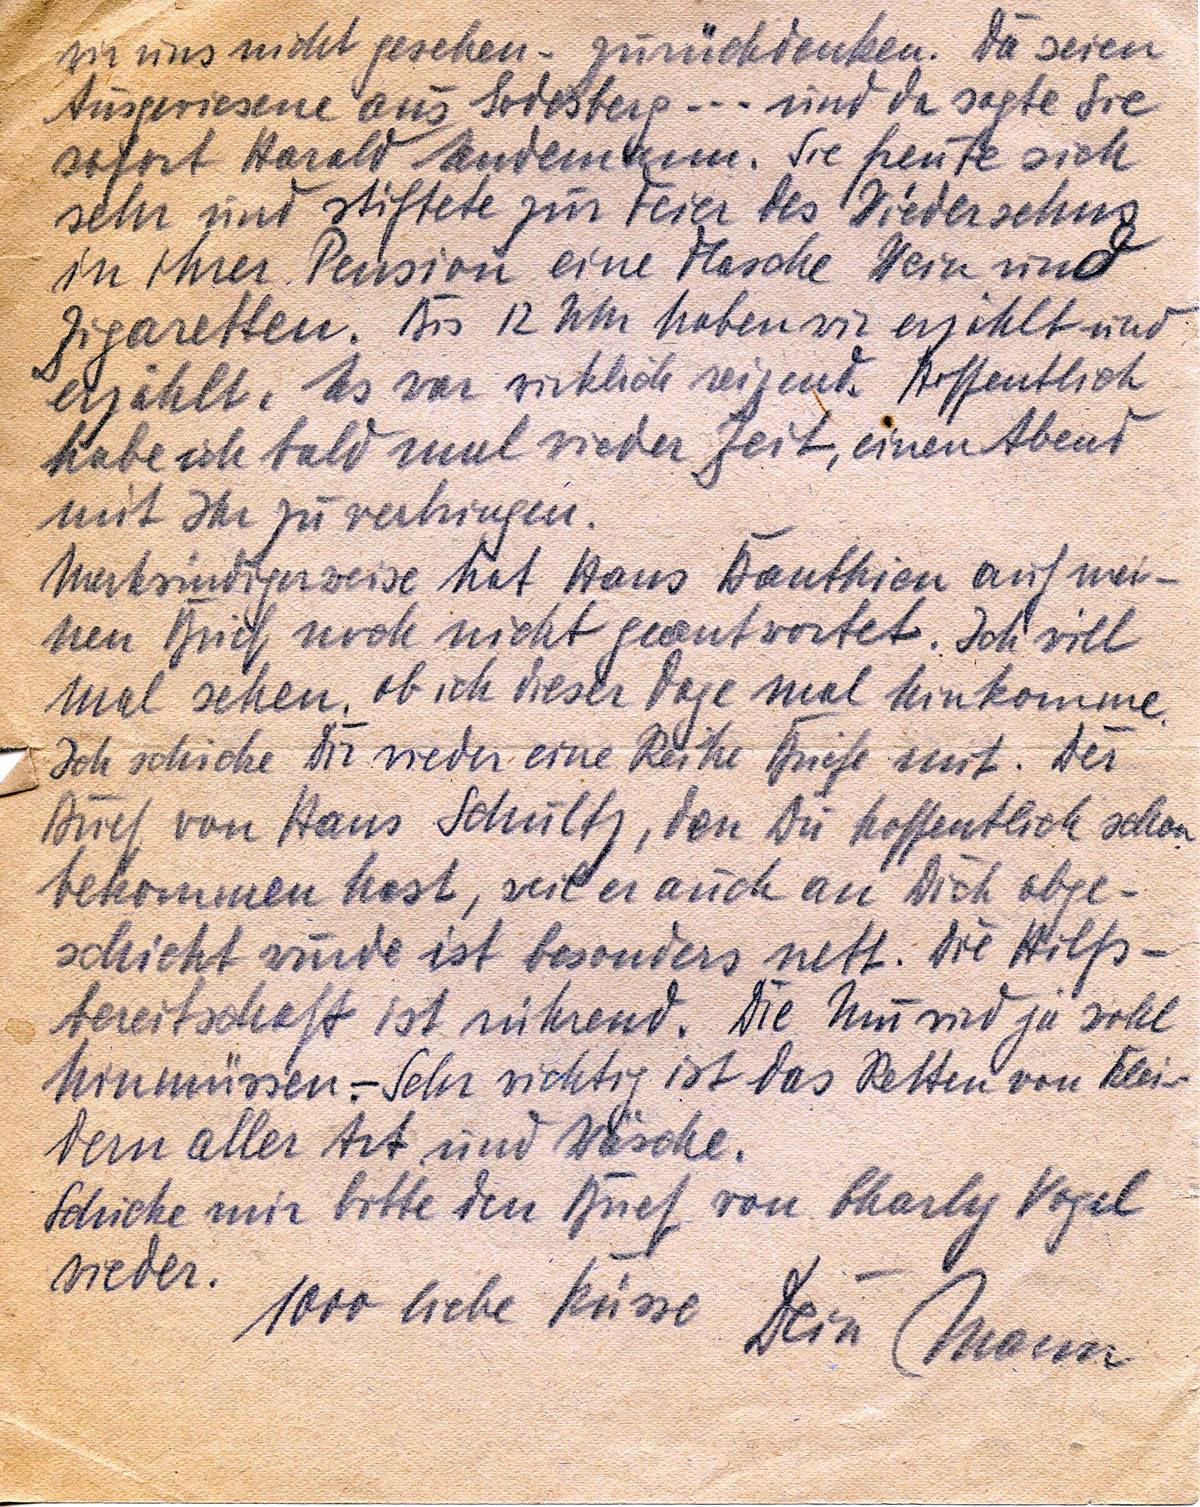 wir uns nicht gesehen - zurückdenken. Da seien
Ausgewiesene aus Godesberg --- und da sagte Sie
sofort Harald Lindemann. Sie freute sich
sehr und stiftete zur Feier des Wiedersehns
in ihrer Pension eine Flasche Wein und
Zigaretten. Bis 12 Uhr haben wir erzählt und
erzählt. Es war wirklich reizend. Hoffentlich
habe ich bald mal wieder Zeit, einen Abend
mit Ihr zu verbringen.
Merkwürdigerweise hat Hans Danthien auf mei-
nen Brief noch nicht geantwortet. Ich will
mal sehen, ob ich dieser Tage mal hinkomme.
Ich schicke Dir wieder eine Reihe Briefe mit. Der
Brief von Hans Schultz, den Du hoffentlich schon
bekommen hast, weil er auch an Dich abge-
schickt wurde ist besonders nett. Die Hilfs-
bereitschaft ist rührend. Die wird ja wohl
hinmüssen. - Sehr wichtig ist das Retten von Klei-
dern aller Art und Wäsche.
Schicke mir bitte den Brief von Charly Vogel
wieder.
1000 liebe Küsse Dein Mann